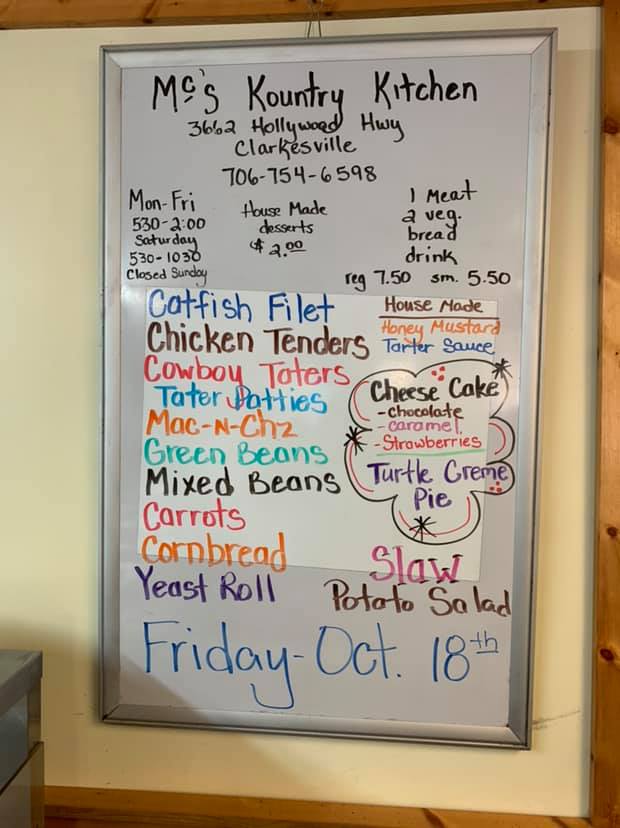 Mc's Kountry Kitchen
3662 Hollywood Hwy
Clarkesville
706-754-6598
Mon-Fri
530-2:00
Saturday
530-1030
Closed Sunday
House Made
desserts
$ 2.00
1 Meat
2 veg.
bread
drink
reg 7.50 sm. 5.50
Catfish Filet
Chicken Tenders
Cowboy Taters
Tater Patties
Mac-N-Chz
Green Beans
Mixed Beans
Carrots
Cornbread
Yeast Roll
House Made
Honey Mustard
Tarter Sauce
Cheese Cake
-Chocolate
-caramel
-Strawberries
Turtle Creme
Pie
Slaw
Potato Salad
Friday-Oct. 18th